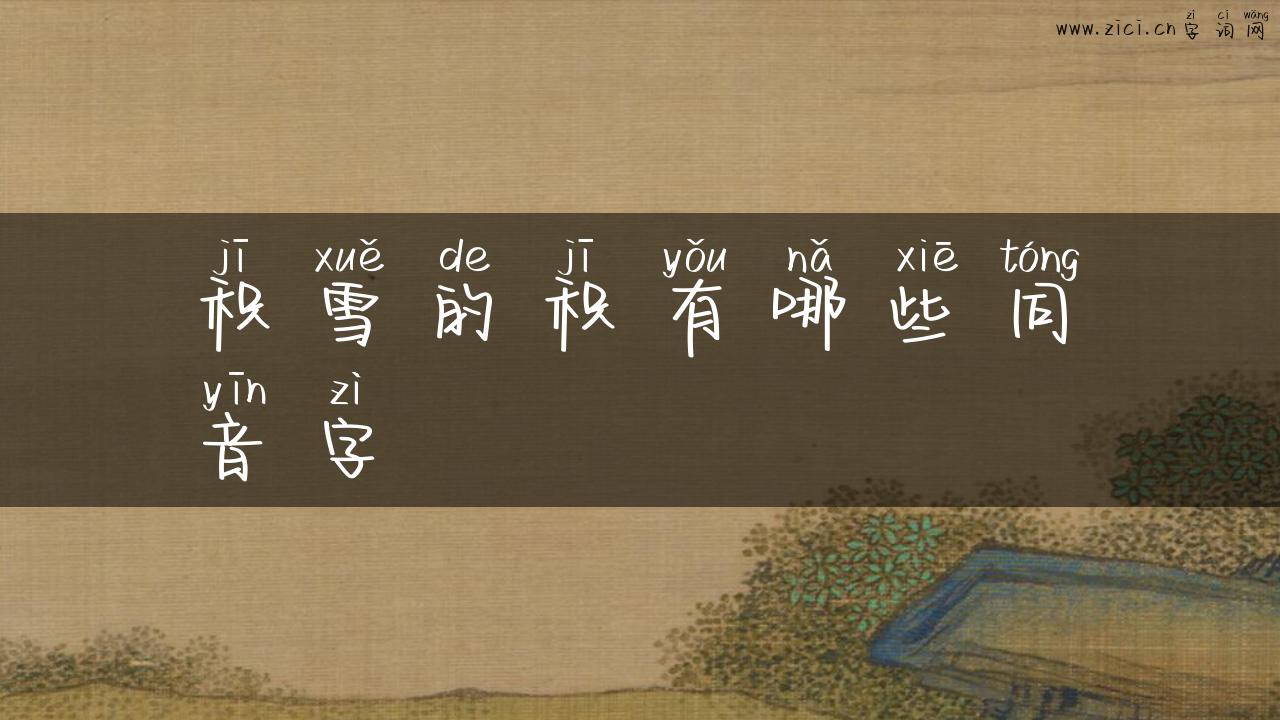 www.zici.cn字词网
zì cí wǎng
jī xuě de jī yǒu nǎ xiē tóng
积雪的积有哪些同
yīn zì
音字